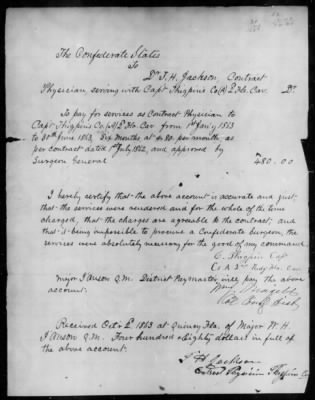 The Confederate States
To
Dr. J. H. Jackson, Contract
Physician serving with Capt Thigpin's Co (A) 2 Fla. Cav. Dr
To pay for services as Contract Physician to
Capt Thigpin's Co. (A) 2 Fla. Cav from 1st Jan'y 1863
to 30th June 1863, Six Months at $80. per month as
per contract dated 1st July 1862, and approved by
Surgeon General 480.00
I hereby certify that the above account is accurate and just;
that the services were rendered and for the whole of the time
charged, that the charges are agreeable to the contract; and
that it being impossible to procure a Confederate Surgeon, the
services were absolutely necessary for the good of my command.
C. Thigpin Capt
Co A 2nd Fla. Cav
Major J. Auson Q.M. District Paymaster will pay the above
account.
Received Oct 2d 1863 at Quincy Fla. of Major W. H.
J. Auson Q.M. Four hundred & Eighty dollars in full of
the above account.
J H Jackson
Contract Physician Thigpin Co